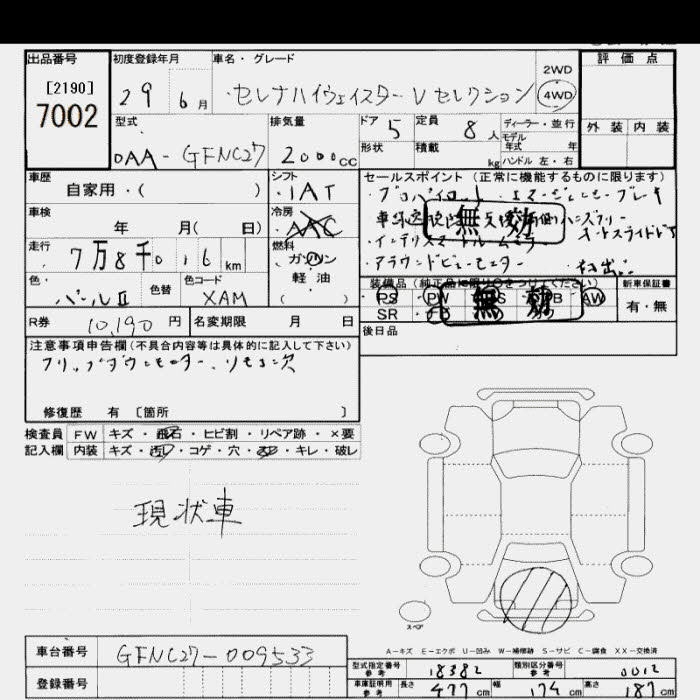 出品番号
[2190]
7002
初度登録年月
29 6 月
車名・グレード
セレナハイウェイスター V セレクション
2WD
4WD
評価点
外装 内装
型式
DAA-GFNC27
排気量
2000 cc
ドア 5
定員 8 人
形状
積載 kg
ディーラー・並行
モデル年式 年
ハンドル 左・右
車歴
自家用・( )
シフト
・IAT
セールスポイント(正常に機能するものに限ります)
・プロパイロット ・エマージェンシーブレーキ
無効
・インテリジェントルームミラー
オートスライドドア
・アラウンドビューモニター
車検
年 月( 日)
冷房
AAC
走行
7万8千016 km
燃料
ガソリン
軽油
色・
パールⅡ
色替
色コード
XAM
装備品(純正品に限り○をつけてください)
PS PW
無効
AW
SR
新車保証書
有・無
R券 10,190 円
名変期限 月 日
後日品
注意事項申告欄(不具合内容等は具体的に記入して下さい)
フリップダウンモニター、リモコン欠
修復歴 有 〔箇所 〕
検査員 FW キズ・飛石・ヒビ割・リペア跡・×要
記入欄 内装 キズ・汚レ・コゲ・穴・・キレ・破レ
現状車
スペア
A-キズ E-エクボ U-凹み W-補修跡 S-サビ C-腐食 XX-交換済
車台番号
GFNC27-009533
登録番号
型式指定番号
参考
18382
類別区分番号
参考
0012
車庫証明用
参考
長さ 477 cm
幅 174 cm
高さ 187 cm